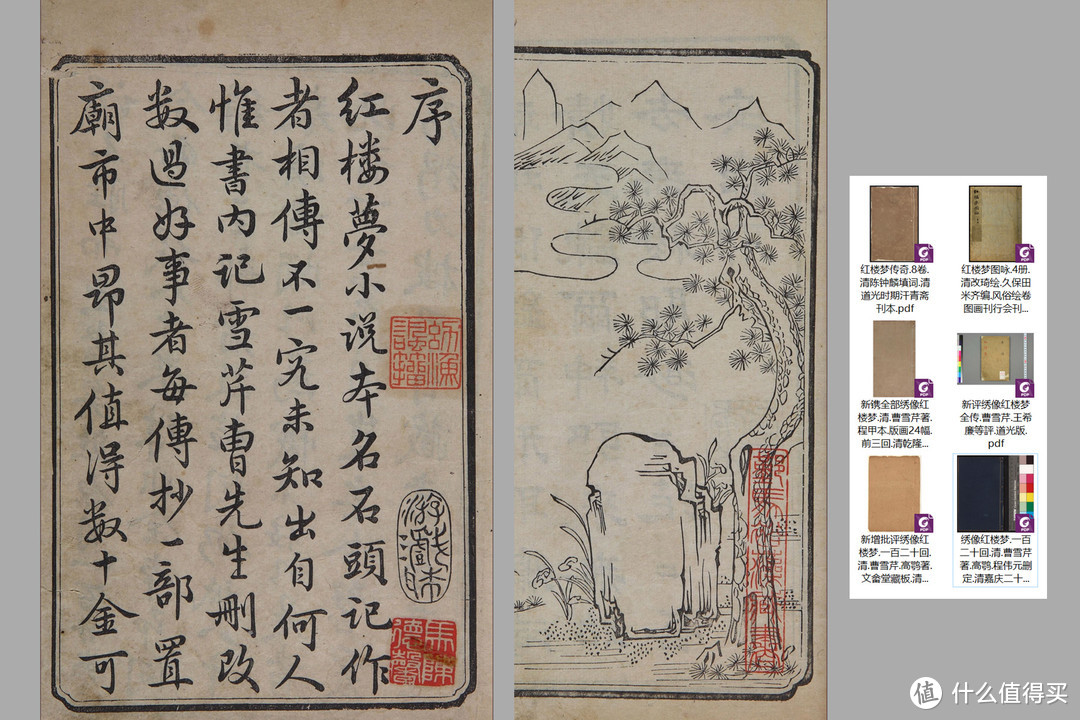 序
红楼夢小说本名石頭记作
者相傳不一究未知出自何人
惟書内记雪芹曹先生删改
数過好事者每傳抄一部置
廟市中昂其值得数十金可
红楼梦传奇.8卷.
清陈钟麟填词.清
道光时期汗青斋
刊本.pdf
红楼梦图咏.4册.
清改琦绘.久保田
米齐编.风俗绘卷
图画刊行会刊...
新镌全部绣像红
楼梦.清.曹雪芹著.
程甲本.版画24幅.
前三回.清乾隆...
新评绣像红楼梦
全传.曹雪芹.王希
廉等評.道光版.
pdf
新增批评绣像红
楼梦.一百二十回.
清.曹雪芹.高鹗著.
文畲堂藏板.清...
绣像红楼梦.一百
二十回.清.曹雪芹
著.高鹗.程伟元删
定.清嘉庆二十...
值 什么值得买